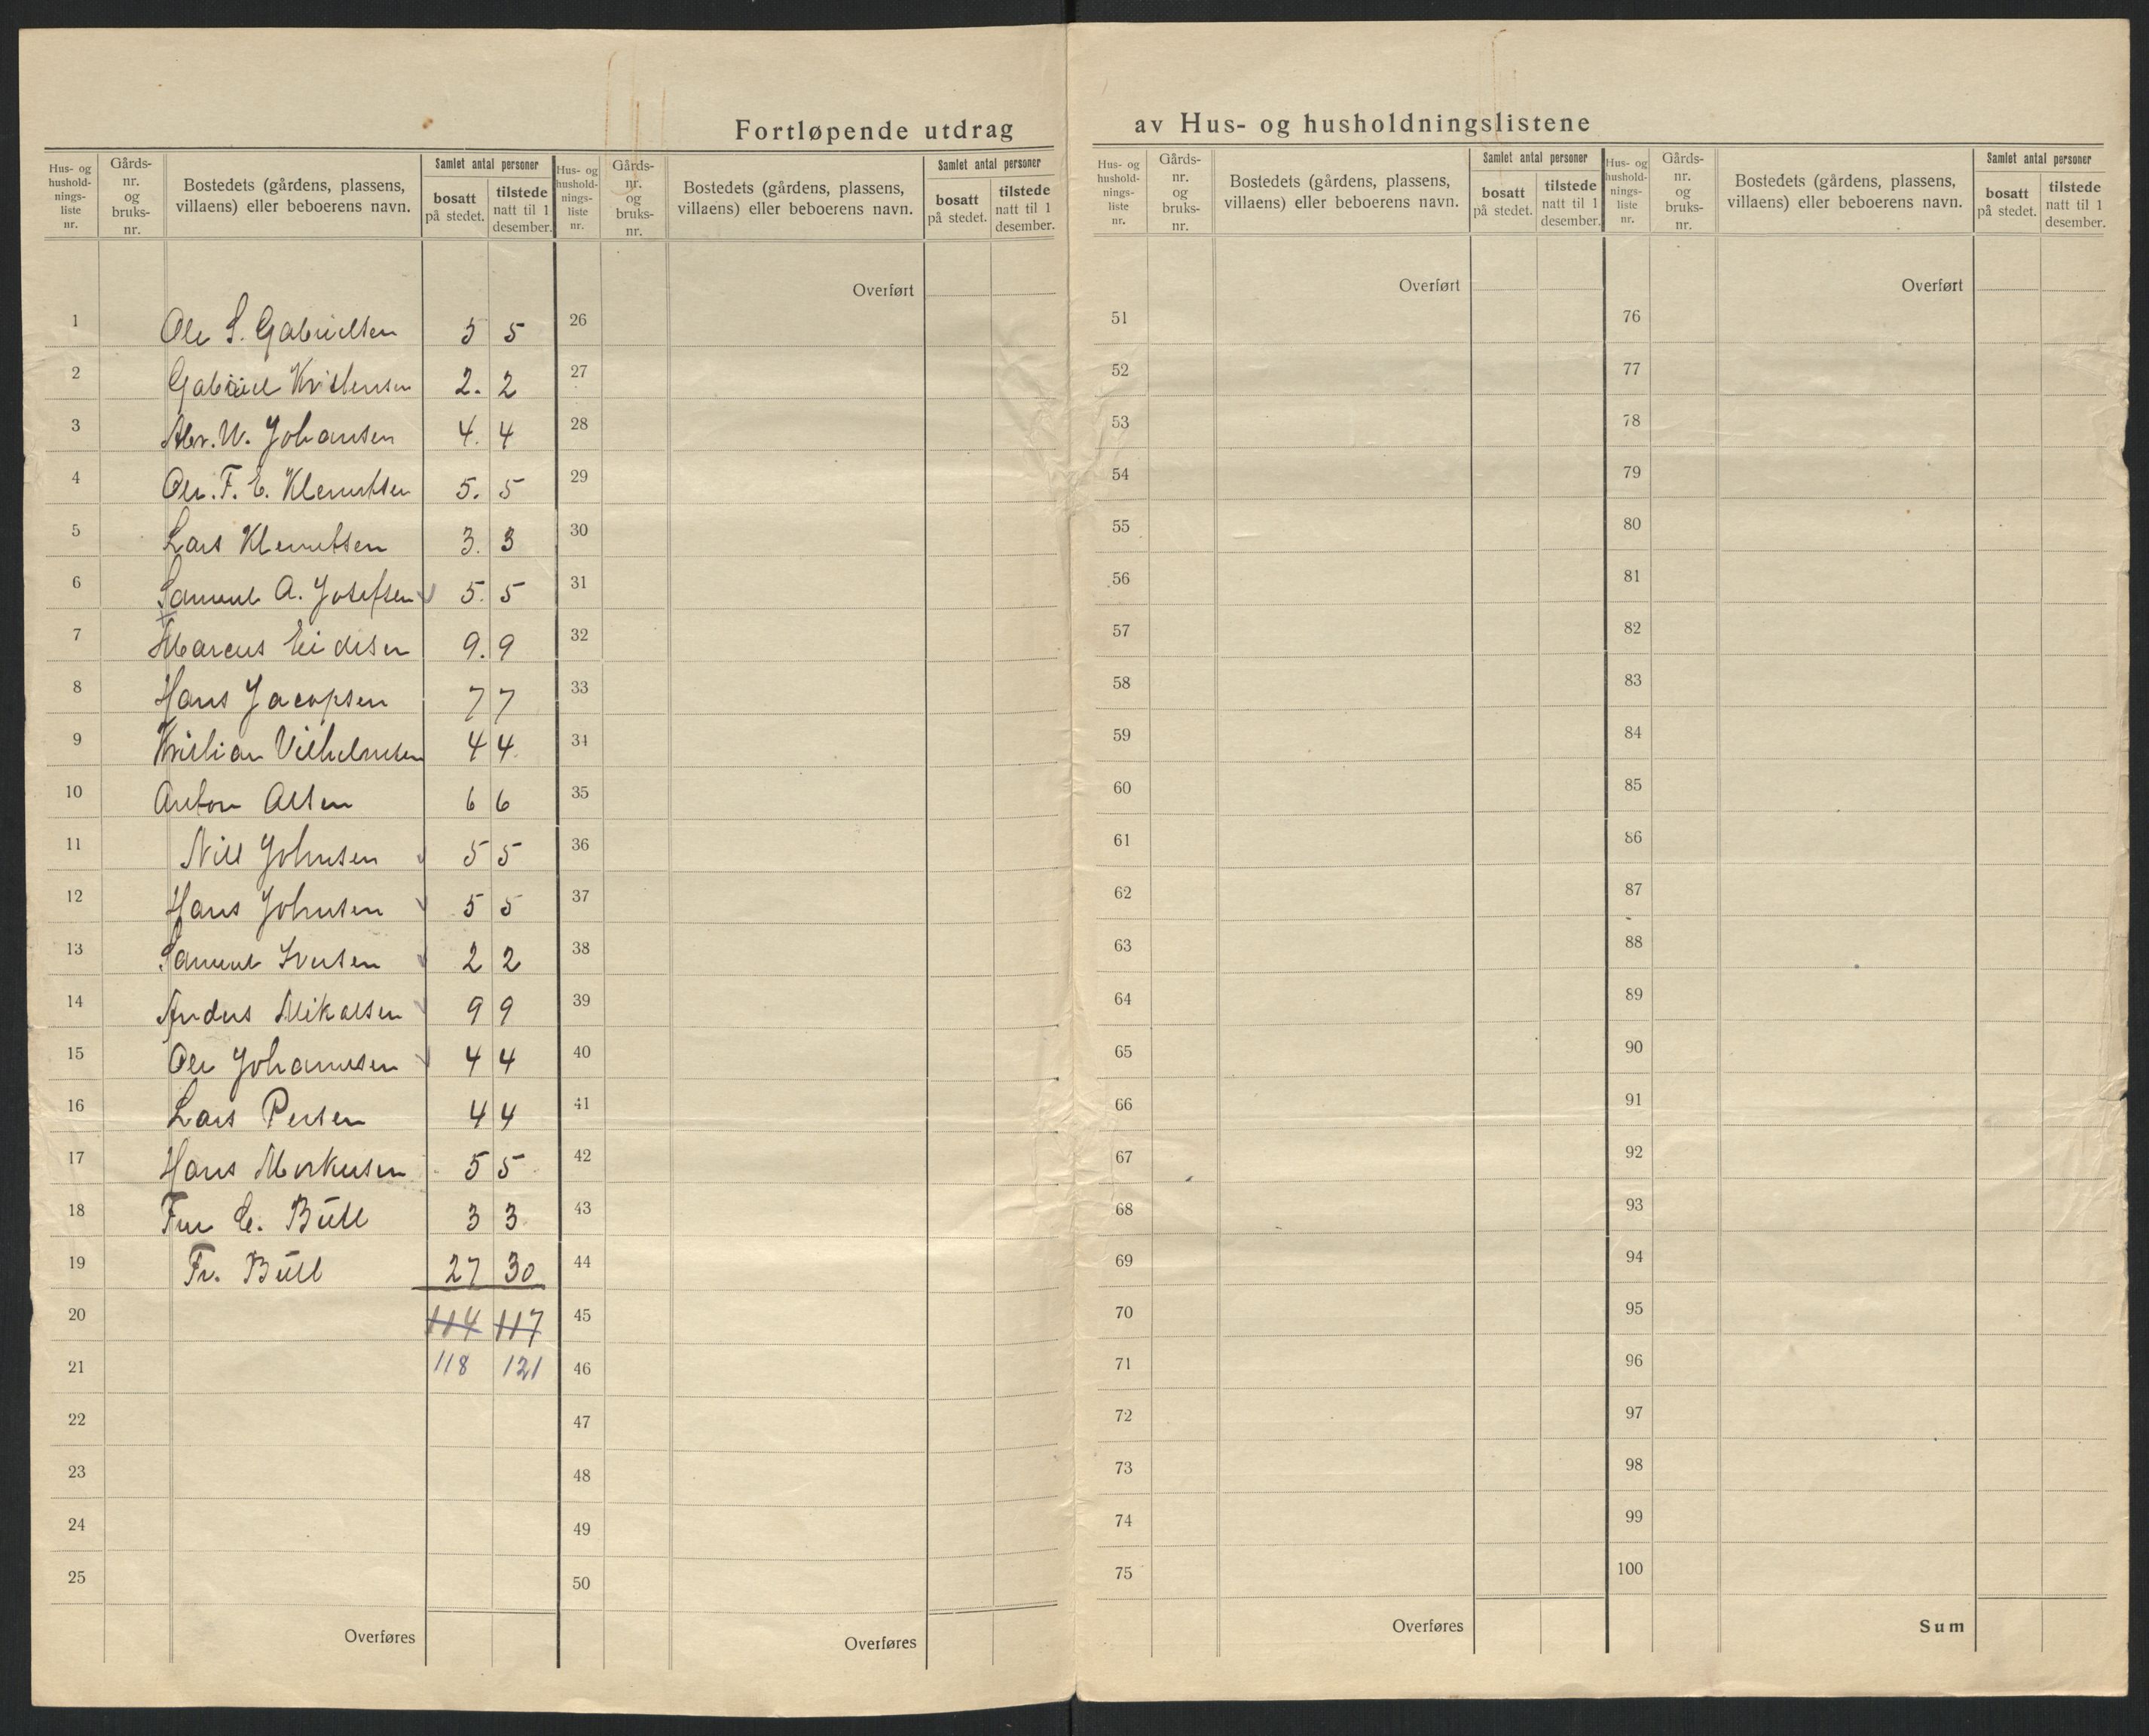 Fortløpende utdrag av Hus- og husholdningslistene
Hus- og hushold-nings-liste nr. Gårds-nr. og bruks-nr. Bostedets (gårdens, plassens, villaens) eller beboerens navn. Samlet antal personer bosatt på stedet. tilstede natt til 1 desember.
1 Ole S. Gabrielsen 5 5
2 Gabriel Kristensen 2. 2
3 Alex. W. Johansen 4. 4
4 Ole. F. E. Klemetsen 5. 5
5 Lars Klemetsen 3. 3
6 Samuel A. Josefsen 5. 5
7 Marcus Eidesen 9. 9
8 Hans Jacopsen 7 7
9 Kristian Vilhelmsen 4 4
10 Anton Olsen 6 6
11 Nils Johnsen 5 5
12 Hans Johnsen 5 5
13 Samuel Iversen 2 2
14 Anders Mikalsen 9 9
15 Ole Johannesen 4 4
16 Lars Persen 4 4
17 Hans Markusen 5 5
18 Fru E. Bull 3 3
19 Fr. Bull 27 30
20 114 117
21 118 121
22
23
24
25
Overføres
Hus- og hushold-nings-liste nr. Gårds-nr. og bruks-nr. Bostedets (gårdens, plassens, villaens) eller beboerens navn. Samlet antal personer bosatt på stedet. tilstede natt til 1 desember.
Overført
26
27
28
29
30
31
32
33
34
35
36
37
38
39
40
41
42
43
44
45
46
47
48
49
50
Overføres
Hus- og hushold-nings-liste nr. Gårds-nr. og bruks-nr. Bostedets (gårdens, plassens, villaens) eller beboerens navn. Samlet antal personer bosatt på stedet. tilstede natt til 1 desember.
Overført
51
52
53
54
55
56
57
58
59
60
61
62
63
64
65
66
67
68
69
70
71
72
73
74
75
Overføres
Hus- og hushold-nings-liste nr. Gårds-nr. og bruks-nr. Bostedets (gårdens, plassens, villaens) eller beboerens navn. Samlet antal personer bosatt på stedet. tilstede natt til 1 desember.
Overført
76
77
78
79
80
81
82
83
84
85
86
87
88
89
90
91
92
93
94
95
96
97
98
99
100
Sum